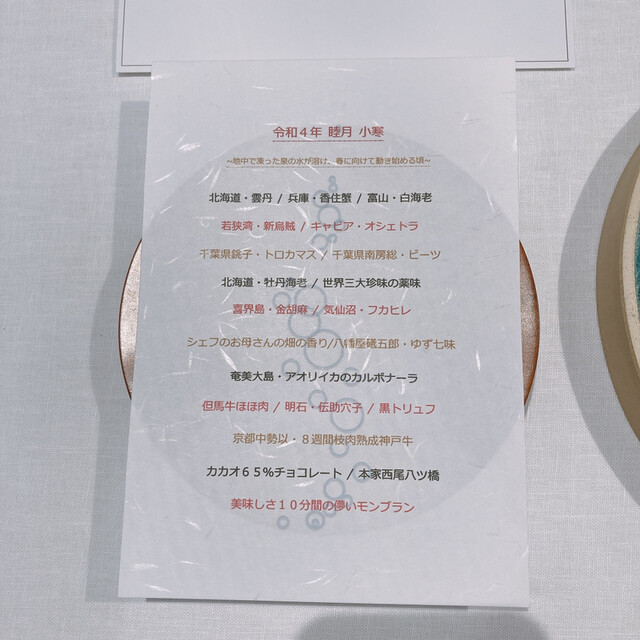 令和４年 睦月 小寒
~地中で凍った泉の水が溶け、春に向けて動き始める頃~
北海道・雲丹 / 兵庫・香住蟹 / 富山・白海老
若狭湾・新烏賊 / キャビア・オシェトラ
千葉県銚子・トロカマス / 千葉県南房総・ビーツ
北海道・牡丹海老 / 世界三大珍味の薬味
喜界島・金胡麻 / 気仙沼・フカヒレ
シェフのお母さんの畑の香り/八幡屋礒五郎・ゆず七味
奄美大島・アオリイカのカルボナーラ
但馬牛ほほ肉 / 明石・伝助穴子 / 黒トリュフ
京都中勢以・８週間枝肉熟成神戸牛
カカオ６５％チョコレート / 本家西尾八ツ橋
美味しさ１０分間の儚いモンブラン